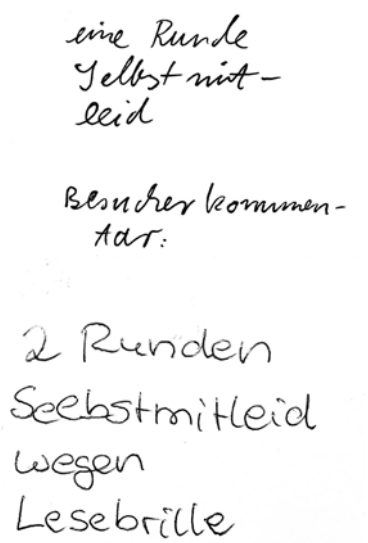 eine Runde
Selbstmit-
leid
Besucherkommen-
tar:
2 Runden
Seebstmitleid
wegen
Lesebrille